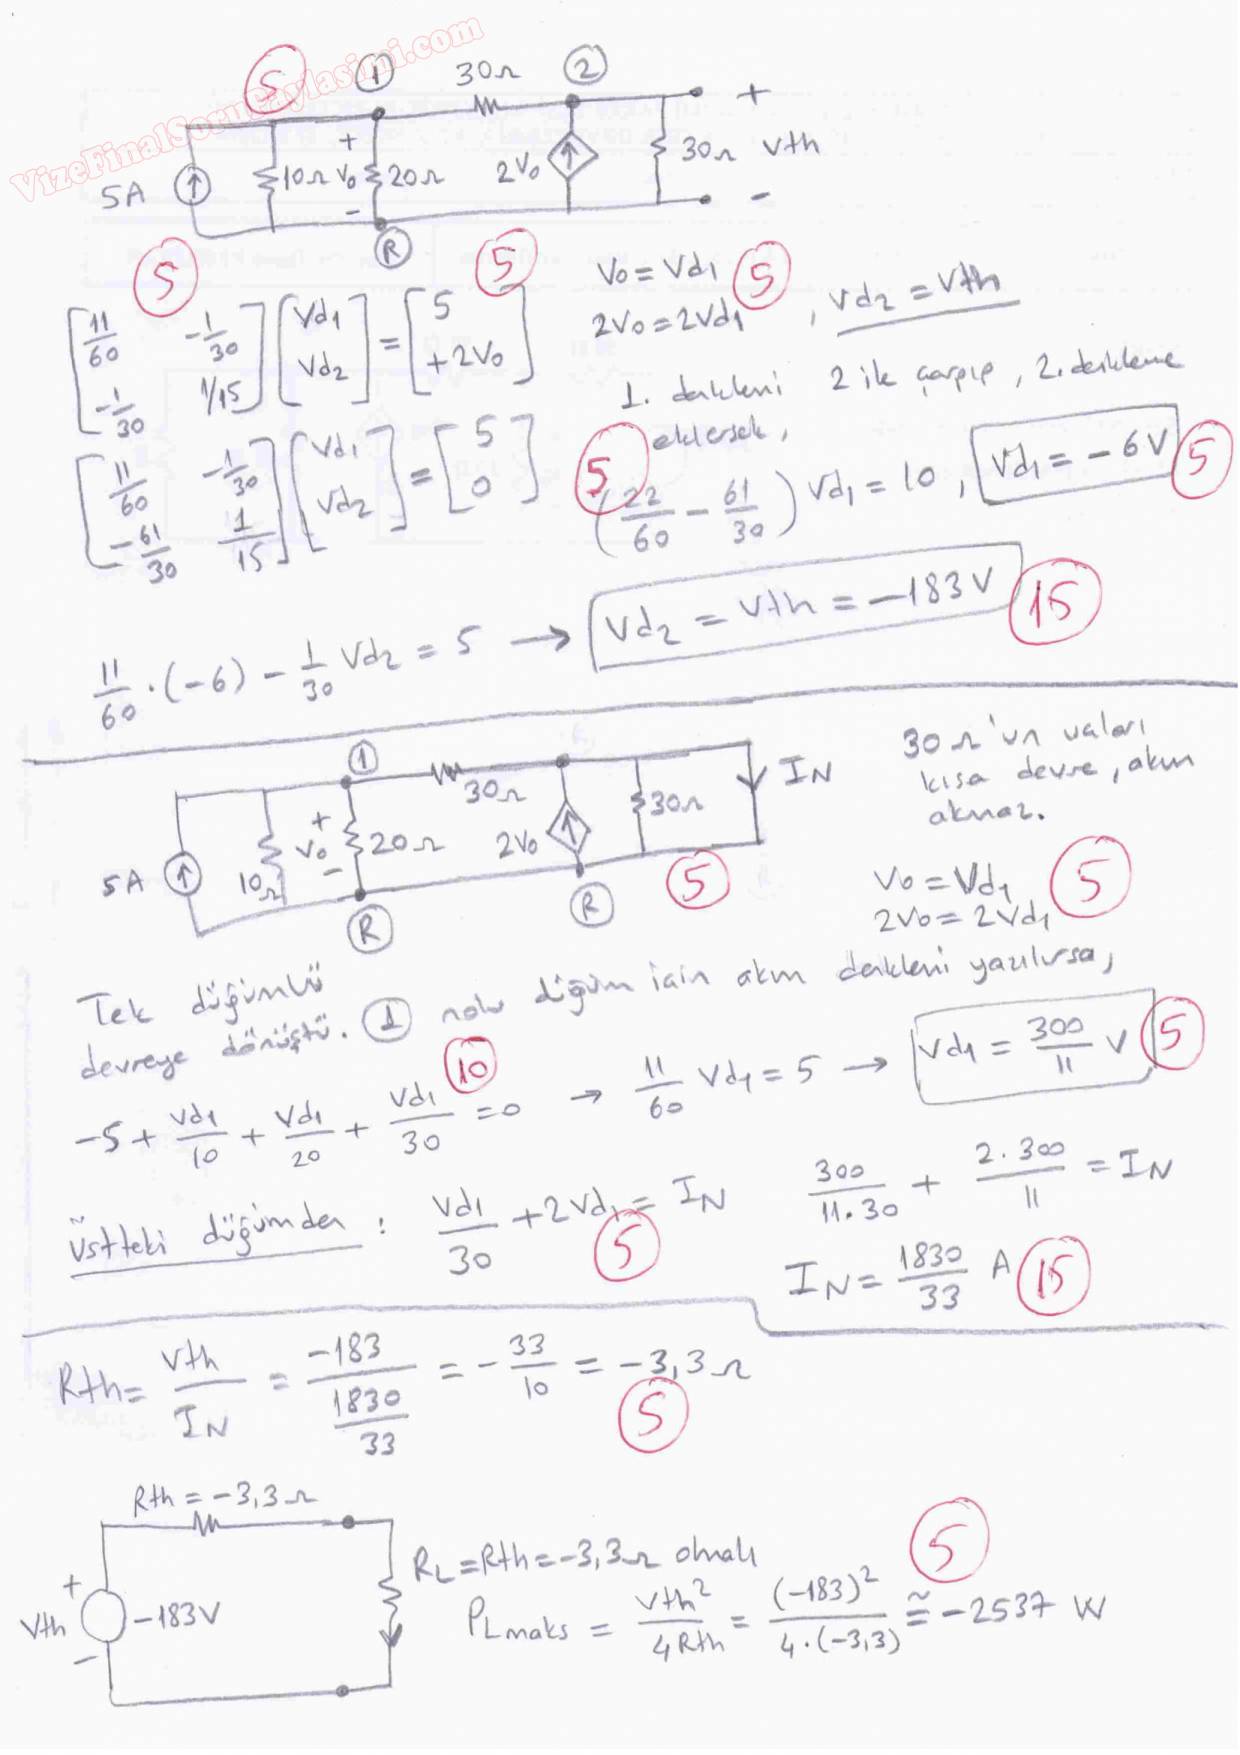 VizeFinalSoruPaylasimi.com
5
1
30Ω
2
+
5A
10Ω
+
V₀
-
20Ω
2V₀
30Ω
Vth
-
R
5
5
[11/60 -1/30; -1/30 1/15] [Vd₁; Vd₂] = [5; +2V₀]
V₀ = Vd₁
2V₀ = 2Vd₁ , Vd₂ = Vth
5
[11/60 -1/30; -61/30 1/15] [Vd₁; Vd₂] = [5; 0]
1. denklemi 2 ile çarpıp, 2. denkleme
eklersek,
5
(22/60 - 61/30) Vd₁ = 10 , Vd₁ = -6V
5
11/60 . (-6) - 1/30 Vd₂ = 5 → Vd₂ = Vth = -183V
15
1
30Ω
5A
10Ω
+
V₀
-
20Ω
2V₀
30Ω
I_N
R
R
5
30Ω'un uçları
kısa devre, akım
akmaz.
V₀ = Vd₁
2V₀ = 2Vd₁
5
Tek düğümlü
devreye dönüştü. 1 nolu düğüm için akım denklemi yazılırsa,
-5 + Vd₁/10 + Vd₁/20 + Vd₁/30 = 0 → 11/60 Vd₁ = 5 → Vd₁ = 300/11 V
10
5
Üstteki düğümden : Vd₁/30 + 2Vd₁ = I_N
5
300/11.30 + 2.300/11 = I_N
I_N = 1830/33 A
15
Rth = Vth/I_N = -183/(1830/33) = -33/10 = -3,3Ω
5
Rth = -3,3Ω
+
Vth
-
-183V
R_L = Rth = -3,3Ω olmalı
5
P_Lmaks = Vth²/4Rth = (-183)²/4.(-3,3) ≅ -2537 W